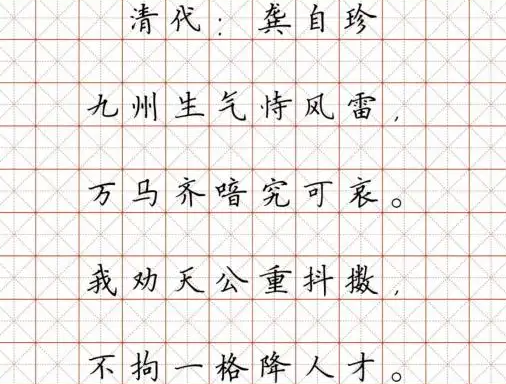 清代：龚自珍
九州生气恃风雷，
万马齐喑究可哀。
我劝天公重抖擞，
不拘一格降人才。